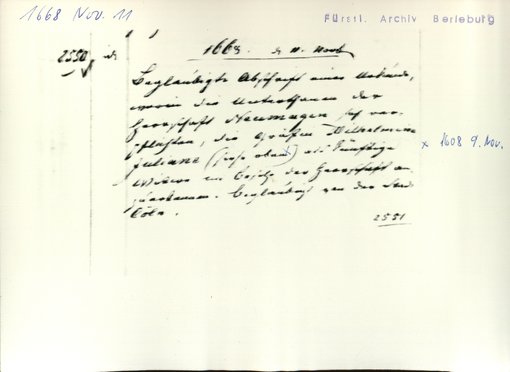 1668 Nov. 11
Fürstl. Archiv Berleburg
2550
1668. d. 11. Novb
Beglaubigte Abschrift einer Urkunde,
worin die Unterthanen der
Herrschaft Neumagen sich ver-
pflichten, die Gräfin Wilhelmine
Juliane (siehe oben x) als künftige
x 1608 9. Nov.
im Besitz der Herrschaft an-
zuerkennen. Beglaubigt von der Stadt
Cöln.
2551